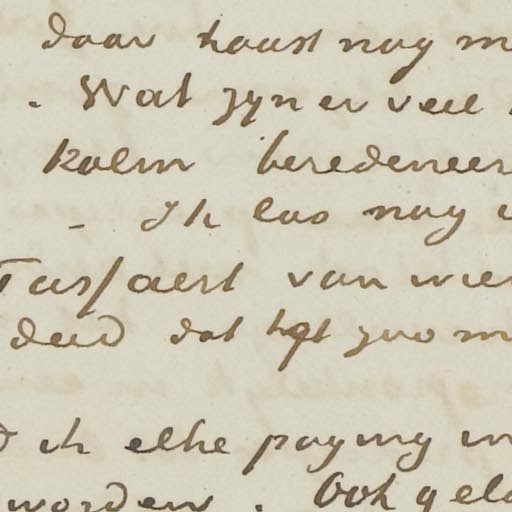 daar haast nog m
. Wat zyn er veel
kalm beredeneer
– Ik las nog
Tassaert van wie
deed dat het zoo m
ik elke poging
worden . Ook gel